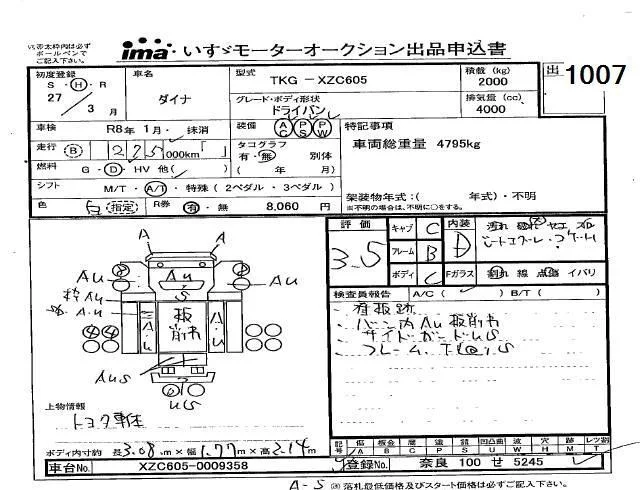 いすゞモーターオークション出品申込書
ima
※赤太枠内は必ず
ボールペンで
ご記入下さい。
出 1007
初度登録 S・H・R 27/3月
車名 ダイナ
型式 TKG-XZC605
積載(kg) 2000
グレード・ボディ形状 ドライバン
排気量(cc) 4000
車検 R8年1月・抹消
装備 AC PS PW
特記事項
車両総重量 4795kg
走行 (B) 275,000km「」
タコグラフ 有・無 別体
(年 月)
燃料 G・D・HV 他( )
シフト M/T・A/T・特殊(2ペダル・3ペダル)
架装物年式:( 年式)・不明
※不明の場合は、不明に○をする。
色 白 (指定) R券 有・無 8,060 円
評価 3.5
キャブ C
フレーム B
ボディ C
内装 D
Fガラス 割れ 線 点傷 イバリ
検査員報告 A/C( ) B/T( )
・看板跡
・バン内AU板削有
・サイドガードUS
・フレーム、下回りS
A
A
AU
AU
AU
S
枠AU
A・U
板削有
A・U
AUS
US
上物情報
トヨタ車体
ボディ内寸約 長3.08m×幅1.77m×高2.14m
記号 傷 板金 腐 塗 錆 凹凸曲 波 穴 跡 レツ割
A B C P S U W H M T
車台No. XZC605-0009358
登録No. 奈良 100 せ 5245
A-S
落札最低価格及びスタート価格は必ずご記入下さい。